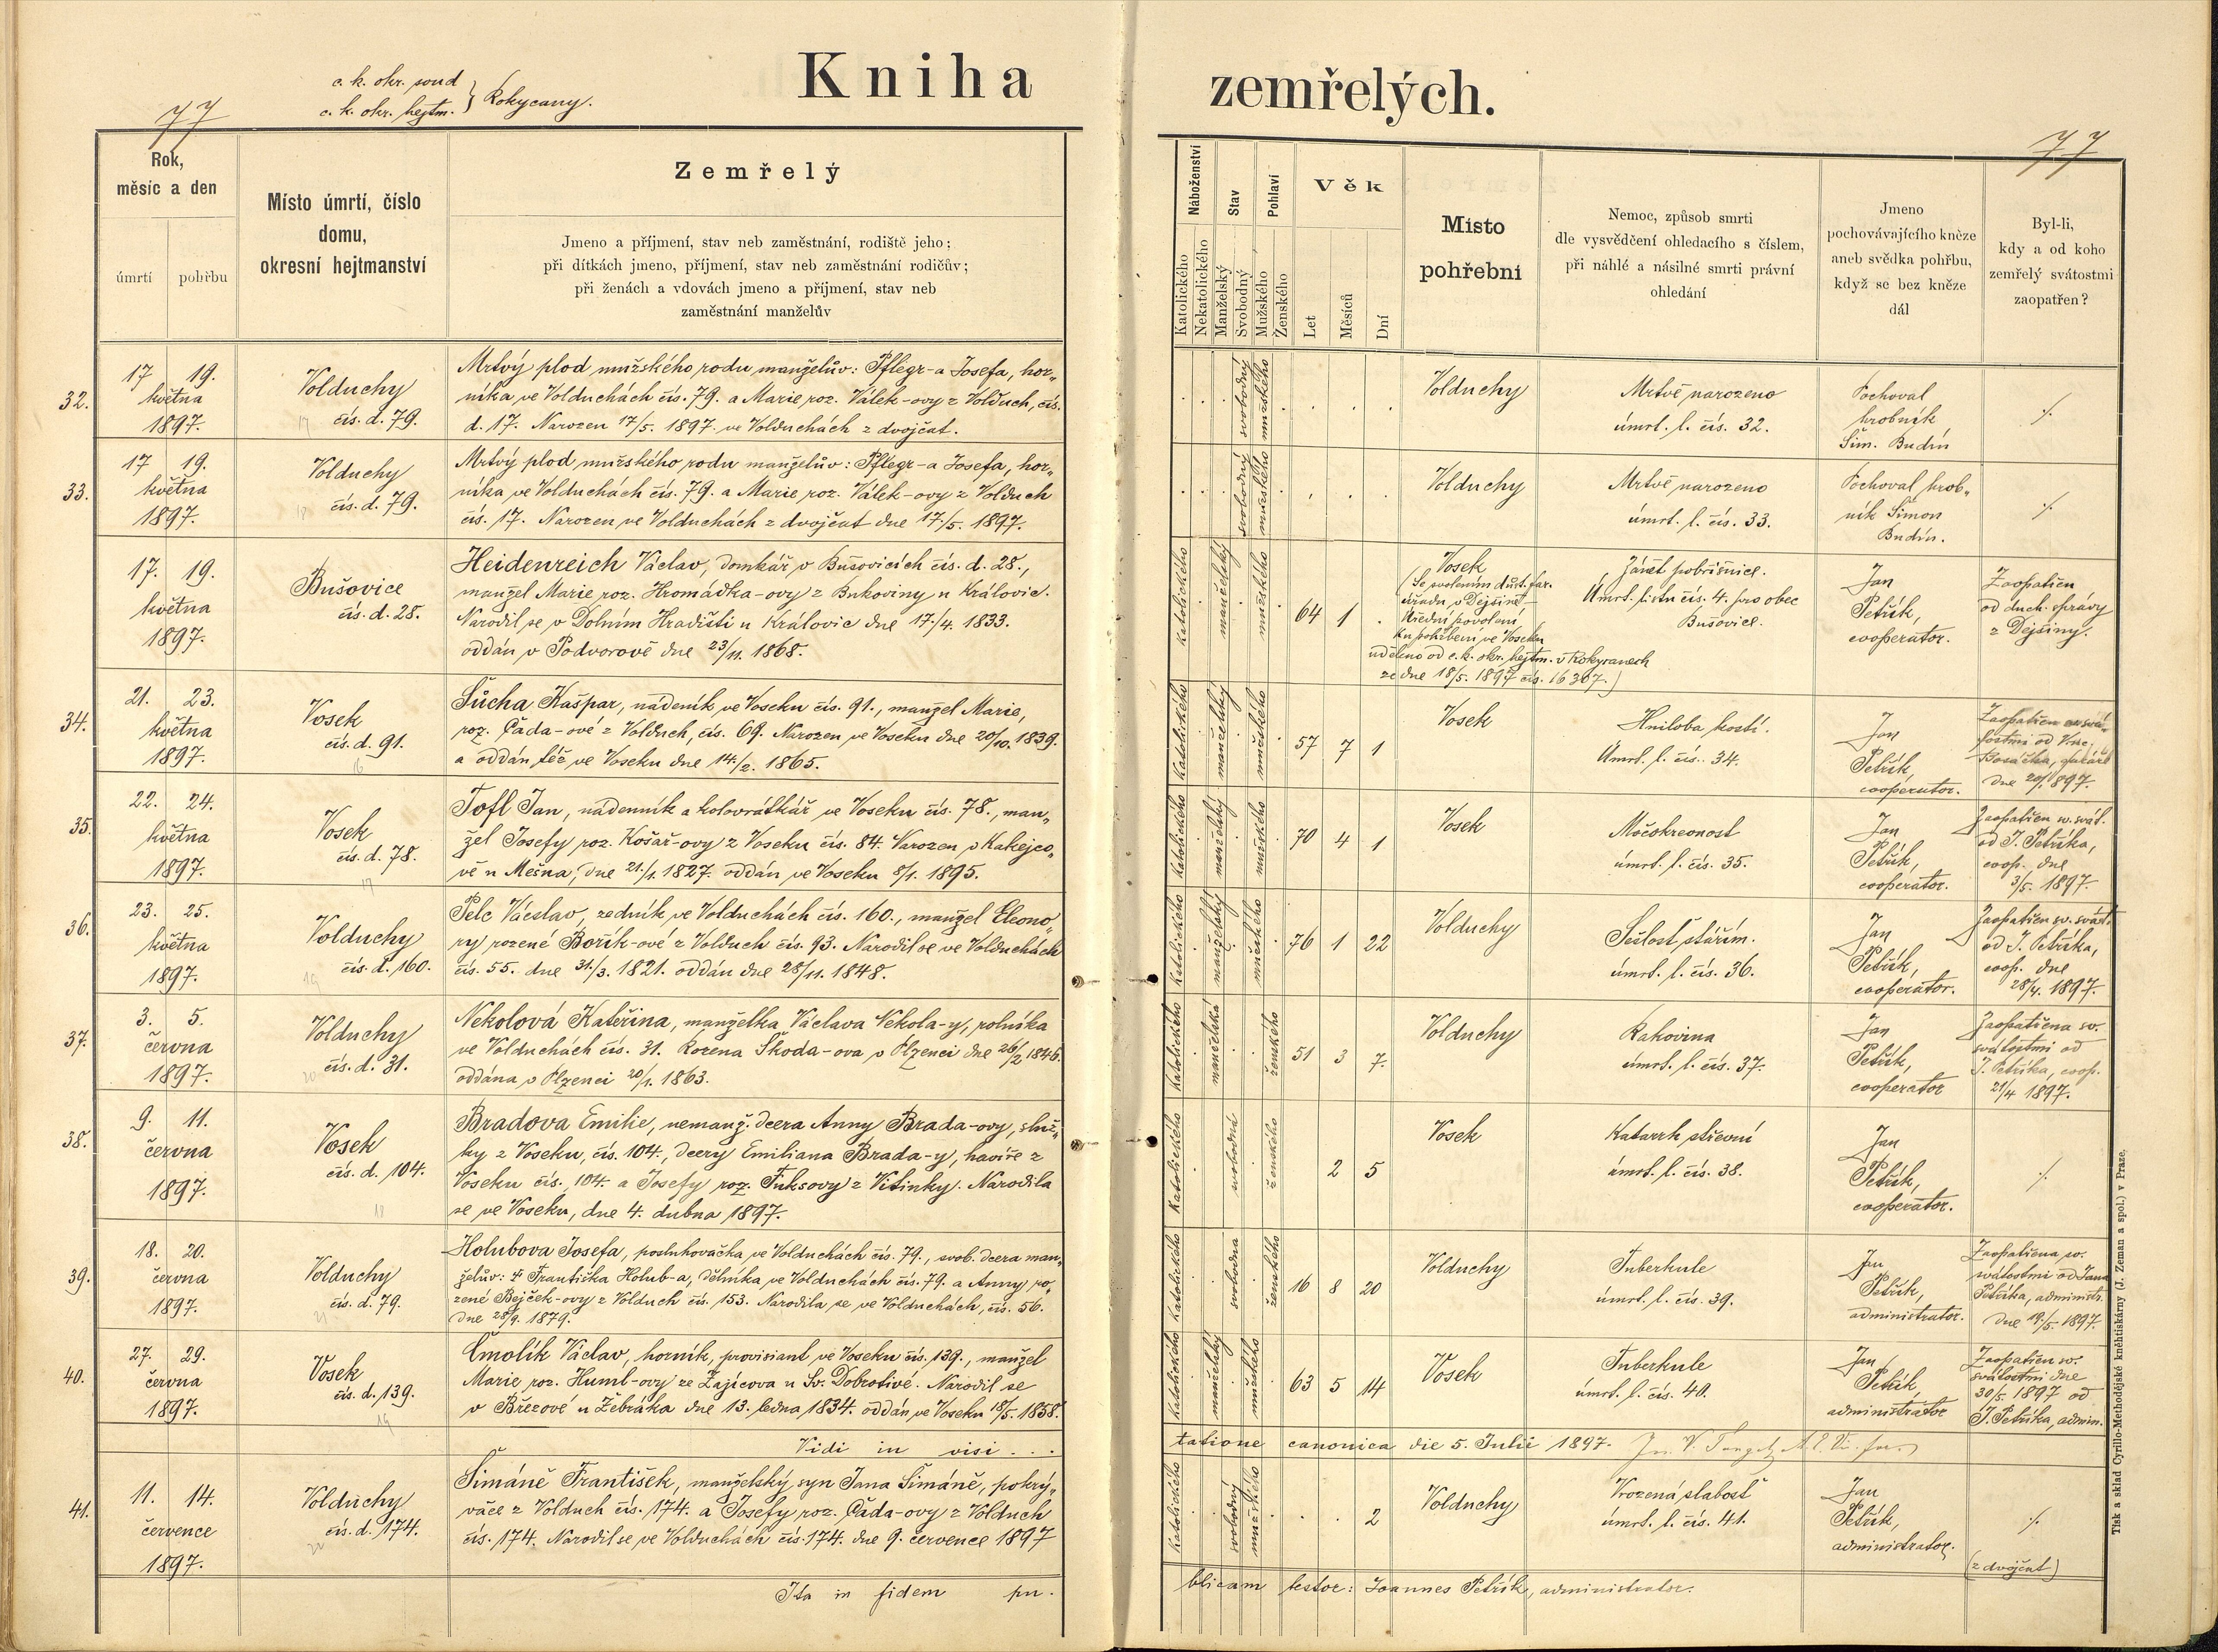 Kniha
zemřelých.
c. k. okr. soud
c. k. okr. hejtm. } Rokycany.
77
77
Rok,
měsíc a den
úmrtí
pohřbu
Místo úmrtí, číslo
domu,
okresní hejtmanství
Zemřelý
Jmeno a příjmení, stav neb zaměstnání, rodiště jeho;
při dítkách jmeno, příjmení, stav neb zaměstnání rodičův;
při ženách a vdovách jmeno a příjmení, stav neb
zaměstnání manželův
Náboženství
Katolického
Nekatolického
Stav
Manželský
Svobodný
Pohlaví
Mužského
Ženského
Věk
Let
Měsíců
Dní
Místo
pohřební
Nemoc, způsob smrti
dle vysvědčení ohledacího s číslem,
při náhlé a násilné smrti právní
ohledání
Jmeno
pochovávajícího kněze
aneb svědka pohřbu,
když se bez kněze
dál
Byl-li,
kdy a od koho
zemřelý svátostmi
zaopatřen?
32.
17 19.
května
1897.
Volduchy
čís. d. 79.
17
Mrtvý plod mužského rodu manželův: Pflegr-a Josefa, hor„
níka ve Volduchách čís. 79. a Marie roz. Válek-ovy z Volduch, čís.
d. 17. Narozen 17/5. 1897. ve Volduchách z dvojčat.
svobodný
mužského
Volduchy
Mrtvě narozeno
úmrt. l. čís. 32.
Pochoval
hrobník
Šim. Budín
·/.
33.
17 19.
května
1897.
Volduchy
čís. d. 79.
18
Mrtvý plod mužského rodu manželův: Pflegr-a Josefa, hor„
níka ve Volduchách čís. 79. a Marie roz. Válek-ovy z Volduch
čís. 17. Narozen ve Volduchách z dvojčat dne 17./5. 1897.
svobodný
mužského
Volduchy
Mrtvě narozeno
úmrt. l. čís. 33.
Pochoval hrob„
ník Šimon
Budín.
·/.
17. 19.
května
1897.
Bušovice
čís. d. 28.
Heidenreich Václav, domkář v Bušovicích čís. d. 28.,
manžel Marie roz. Hromádka-ovy z Bukoviny u Královic.
Narodil se v Dolním Hradišti u Královic dne 17./4. 1833.
oddán v Podvorově dne 23/11. 1868.
katolického
manželský
mužského
64 1 .
Vosek
(Se svolením důst. far.
úřadu v Dejšině –
Úřední povolení
ku pohřbení ve Voseku
uděleno od c. k. okr. hejtm. v Rokycanech
ze dne 18/5. 1897 čís. 16307.)
Zánět pobřišnice.
Úmrt. listu čís. 4. pro obec
Bušovice.
Jan
Petřík,
cooperator.
Zaopatřen
od duch. správy
z Dejšiny.
34.
21. 23.
května
1897.
Vosek
čís. d. 91.
16
Sůcha Kašpar, nádeník ve Voseku čís. 91., manžel Marie,
roz. Čada-ové z Volduch, čís. 69. Narozen ve Voseku dne 20/10. 1839.
a oddán též ve Voseku dne 14./2. 1865.
Katolického
manželský
mužského
57 7 1
Vosek
Hniloba kostí.
Úmrt. l. čís. 34.
Jan
Petřík,
cooperator.
35.
22. 24.
května
1897.
Vosek
čís. d. 78.
17
Tofl Jan, nádenník a kolovrátkář ve Voseku čís. 78., man„
žel Josefy roz. Košař-ovy z Voseku čís. 84. Narozen v Kakejco„
vě u Mešna, dne 21./1. 1827. oddán ve Voseku 8/1. 1895.
katolického
manželský
mužského
70 4 1
Vosek
Močokrevnost
úmrt. l. čís. 35.
Jan
Petřík,
cooperator.
Zaopatřen sv. svát.
od J. Petříka,
coop. dne
3/5. 1897.
36.
23. 25.
května
1897.
Volduchy
čís. d. 160.
19
Pelc Václav, zedník ve Volduchách čís. 160., manžel Eleono„
ry rozené Bořík-ové z Volduch čís. 93. Narodil se ve Volduchách
čís. 55. dne 31./3. 1821. oddán dne 28/11. 1848.
katolického
manželský
mužského
76 1 22
Volduchy
Sešlost stářím.
úmrt. l. čís. 36.
Jan
Petřík,
cooperator.
Zaopatřen sv. svát.
od J. Petříka,
coop. dne
28/4. 1897.
37.
3. 5.
června
1897.
Volduchy
čís. d. 31.
20
Nekolová Kateřina, manželka Václava Nekola-y, rolníka
ve Volduchách čís. 31. Rozena Škoda-ova v Plzenci dne 26/2 1846.
oddána v Plzenci 20/1. 1863.
katolického
manželská
ženského
51 3 7.
Volduchy
Rakovina
úmrt. l. čís. 37.
Jan
Petřík,
cooperator
Zaopatřena sv.
svátostmi od
J. Petříka, coop.
21/4 1897.
38.
9. 11.
června
1897.
Vosek
čís. d. 104.
18
Bradova Emilie, nemanž. dcera Anny Brada-ovy, služ„
ky z Voseku, čís. 104., dcery Emiliana Brada-y, havíře z
Voseku čís. 104. a Josefy roz. Fuksovy z Vitinky. Narodila
se ve Voseku, dne 4. dubna 1897.
Katolického
svobodná
ženského
2 5
Vosek
Katarrh střevní
úmrt. l. čís. 38.
Jan
Petřík,
cooperator.
·/.
39.
18. 20.
června
1897.
Volduchy
čís. d. 79.
21
Holubova Josefa, posluhovačka ve Volduchách čís. 79., svob. dcera man„
želův: † Františka Holub-a, dělníka ve Volduchách čís. 79. a Anny ro„
zené Bejček-ovy z Volduch čís. 153. Narodila se ve Volduchách, čís. 56.
dne 28/9. 1879.
Katolického
svobodna
ženského
16 8 20
Volduchy
Tuberkule
úmrt. l. čís. 39.
Jan
Petřík,
administrator.
Zaopatřena sv.
svátostmi od Jana
Petříka, administr.
dne 19./5. 1897.
40.
27. 29.
června
1897.
Vosek
čís. d. 139.
19
Čmolík Václav, horník, provisiant ve Voseku čís. 139., manžel
Marie roz. Huml-ovy ze Zajícova u Sv. Dobrotivé. Narodil se
v Březové u Žebráka dne 13. ledna 1834. oddán ve Voseku 18/5. 1858.
Katolického
manželský
mužského
63 5 14
Vosek
Tuberkule
úmrt. l. čís. 40.
Jan
Petřík
administrátor
Zaopatřen sv.
svátostmi dne
30/5 1897 od
J. Petříka, admin.
Vidi in visi . . .
tatione canonica die 5. Julii 1897.
41.
11. 14.
července
1897.
Volduchy
čís. d. 174.
22
Šimáně František, manželský syn Jana Šimáně, pokrý„
vače z Volduch čís. 174. a Josefy, roz. Čada-ovy z Volduch
čís. 174. Narodil se ve Volduchách čís. 174. dne 9. července 1897
katolického
svobodný
mužského
2
Volduchy
Vrozená slabosť
úmrt. l. čís. 41.
Jan
Petřík,
administrator.
·/.
(z dvojčat)
Ita in fidem pu-
blicam testor: Joannes Petřík, administrator.
Tisk a sklad Cyrillo-Methodějské kněhtiskárny (J. Zeman a spol.) v Praze.